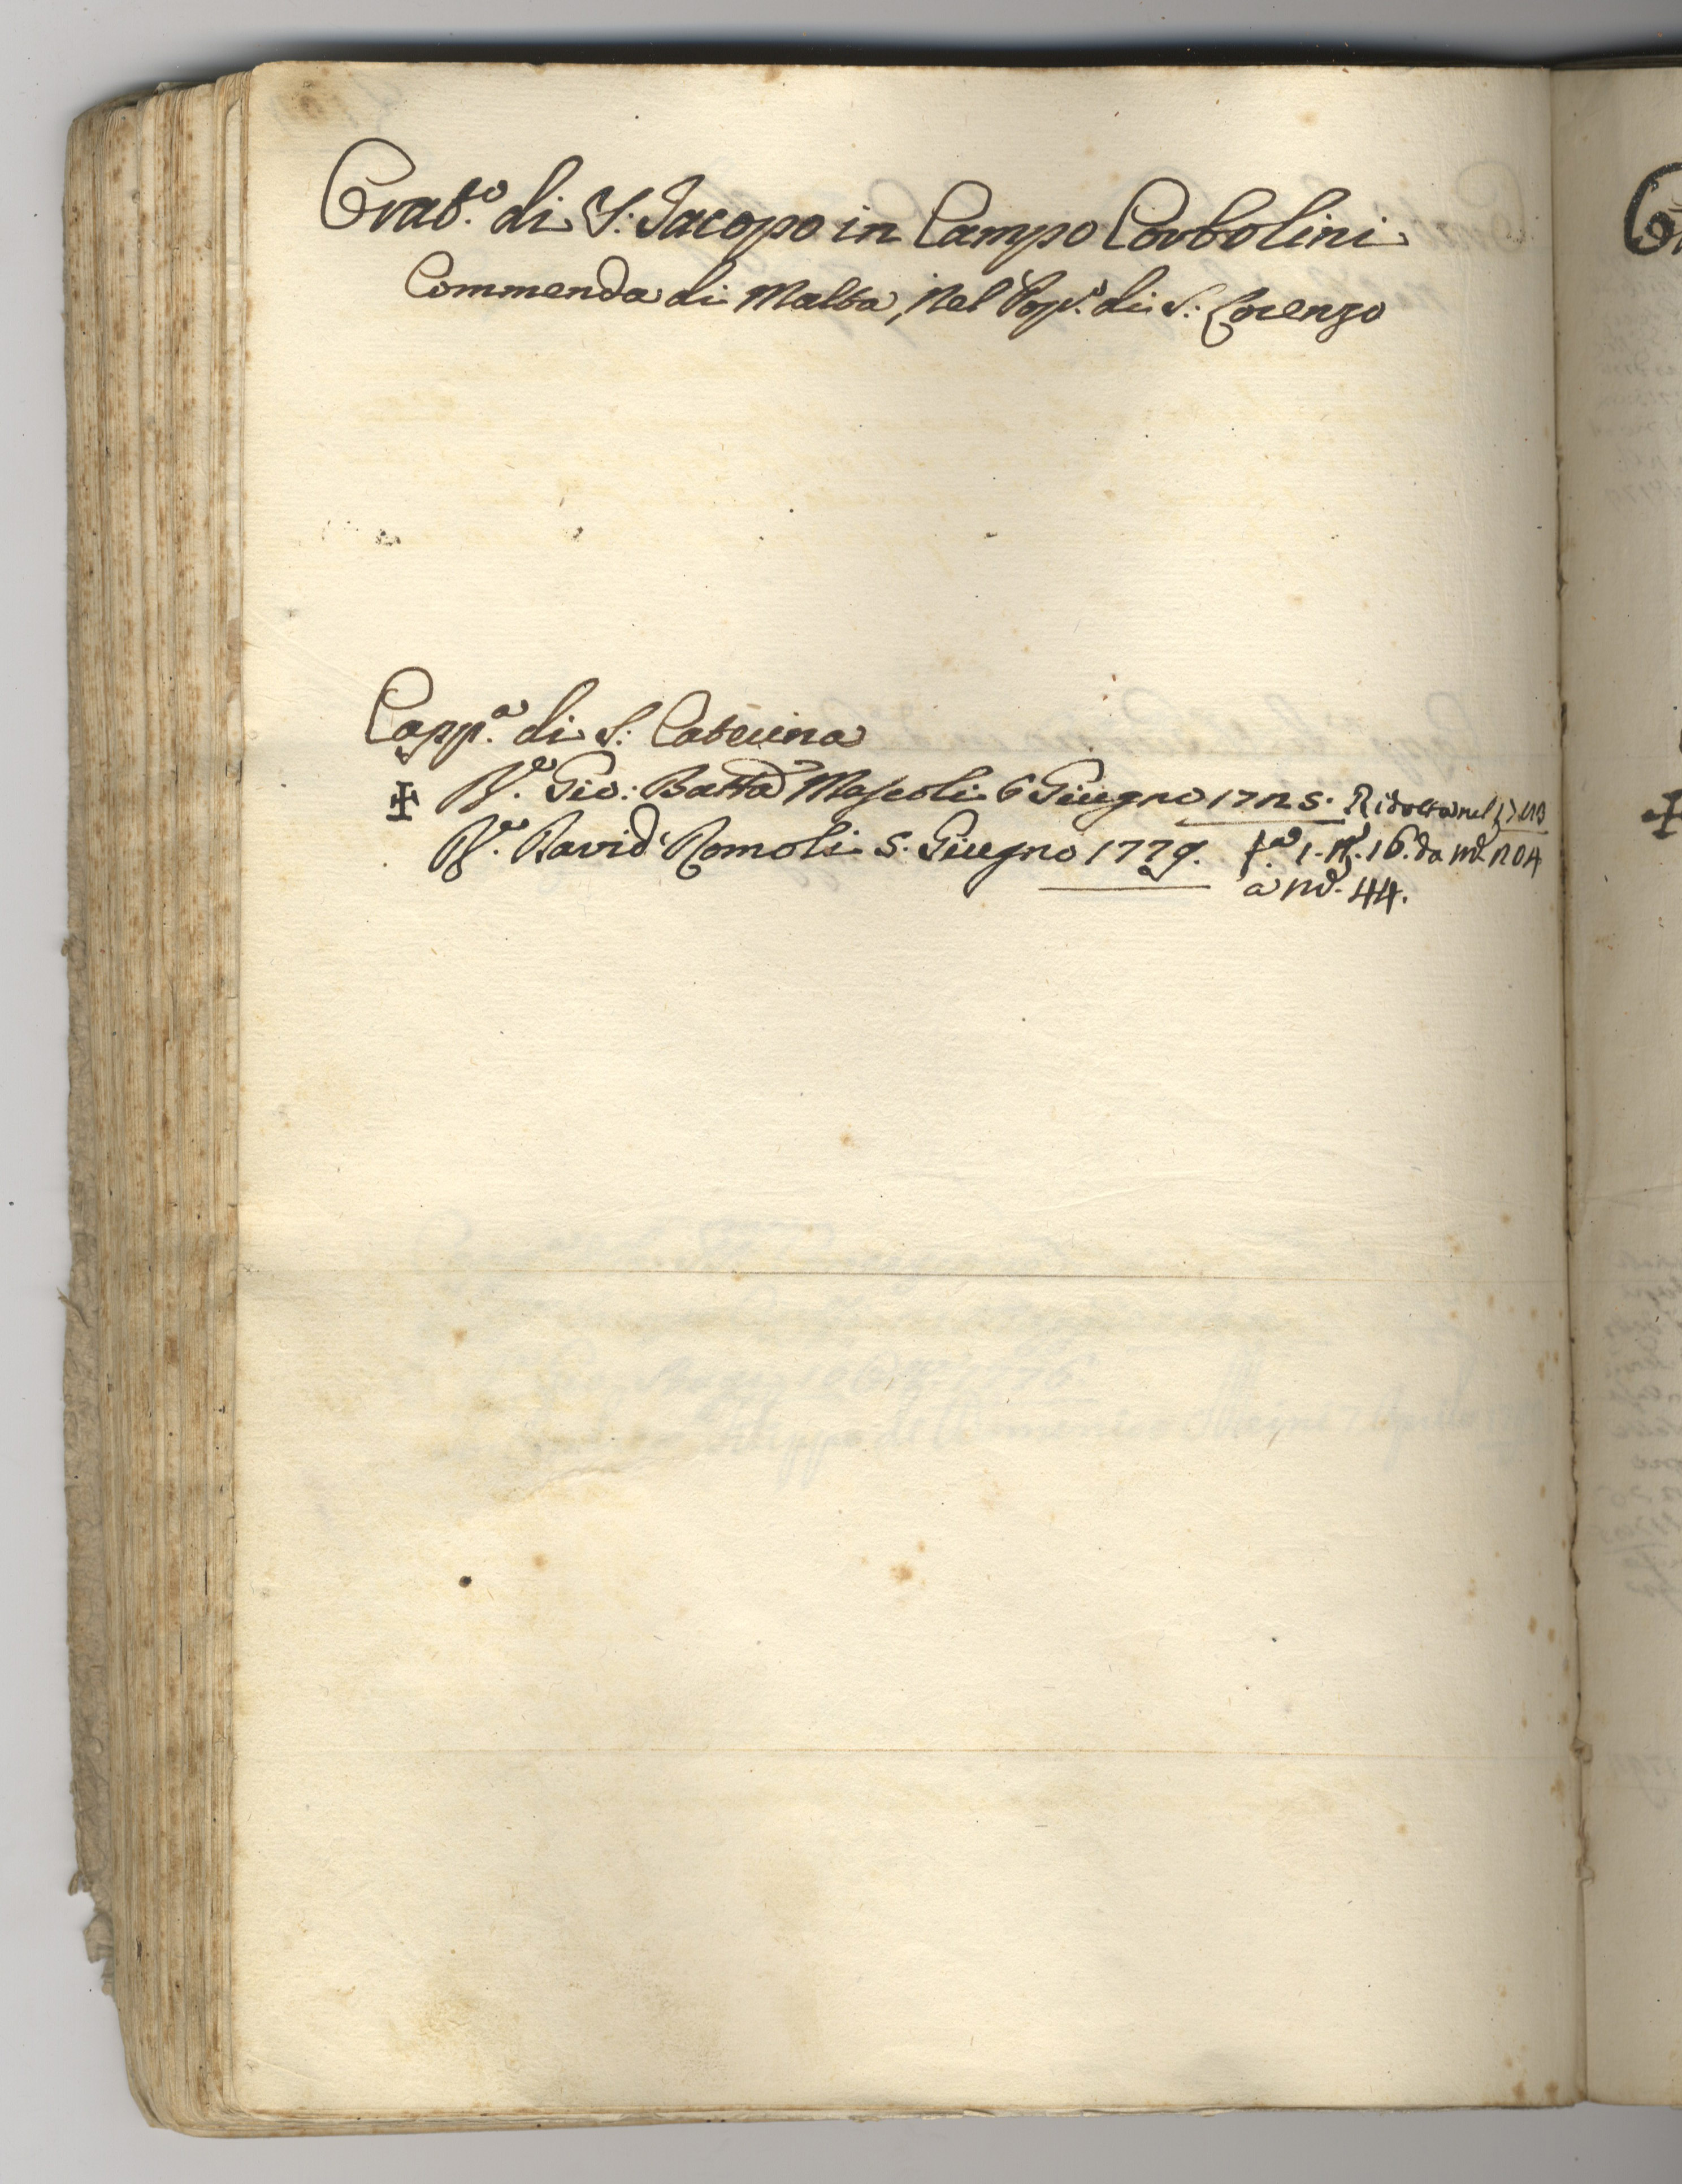 Orat.º di S: Jacopo in Campo Corbolini
Commenda di Malta, nel Pop.º di S: Lorenzo
Capp.ª di S: Caterina
✠ R.º Gio: Batta Mascoli 6 Giugno 1725. Ridotta nel
R.º David Romoli 5. Giugno 1779. f.ª 1. N.º 16. da n.º 204
a n.º 44.